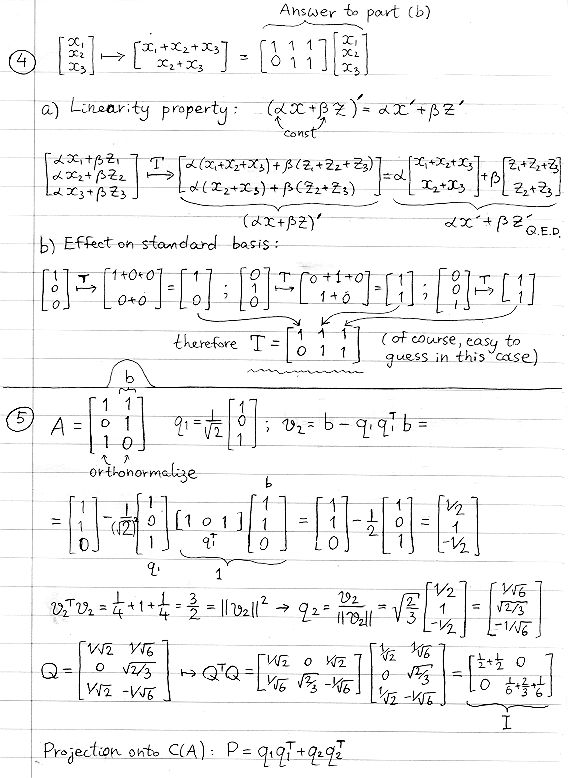 Answer to part (b)
④ [x₁; x₂; x₃] ↦ [x₁+x₂+x₃; x₂+x₃] = [1 1 1; 0 1 1] [x₁; x₂; x₃]
a) Linearity property: (αx+βz)′ = αx′+βz′
const
[αx₁+βz₁; αx₂+βz₂; αx₃+βz₃] T↦ [α(x₁+x₂+x₃)+β(z₁+z₂+z₃); α(x₂+x₃)+β(z₂+z₃)] = α[x₁+x₂+x₃; x₂+x₃] + β[z₁+z₂+z₃; z₂+z₃]
(αx+βz)′ αx′+βz′ Q.E.D.
b) Effect on standard basis:
[1; 0; 0] T↦ [1+0+0; 0+0] = [1; 0] ; [0; 1; 0] T↦ [0+1+0; 1+0] = [1; 1] ; [0; 0; 1] T↦ [1; 1]
therefore T = [1 1 1; 0 1 1] (of course, easy to
guess in this case)
b
⑤ A = [1 1; 0 1; 1 0] q₁ = 1/√2 [1; 0; 1] ; v₂ = b − q₁q₁ᵀb =
orthonormalize
b
= [1; 1; 0] − 1/(√2)² [1; 0; 1] [1 0 1] [1; 1; 0] = [1; 1; 0] − 1/2 [1; 0; 1] = [1/2; 1; −1/2]
q₁ q₁ᵀ 1
v₂ᵀv₂ = 1/4 + 1 + 1/4 = 3/2 = ||v₂||² → q₂ = v₂/||v₂|| = √(2/3) [1/2; 1; −1/2] = [1/√6; √(2/3); −1/√6]
Q = [1/√2 1/√6; 0 √(2/3); 1/√2 −1/√6] ↦ QᵀQ = [1/√2 0 1/√2; 1/√6 √(2/3) −1/√6] [1/√2 1/√6; 0 √(2/3); 1/√2 −1/√6] = [1/2+1/2 0; 0 1/6+2/3+1/6]
I
Projection onto C(A): P = q₁q₁ᵀ + q₂q₂ᵀ